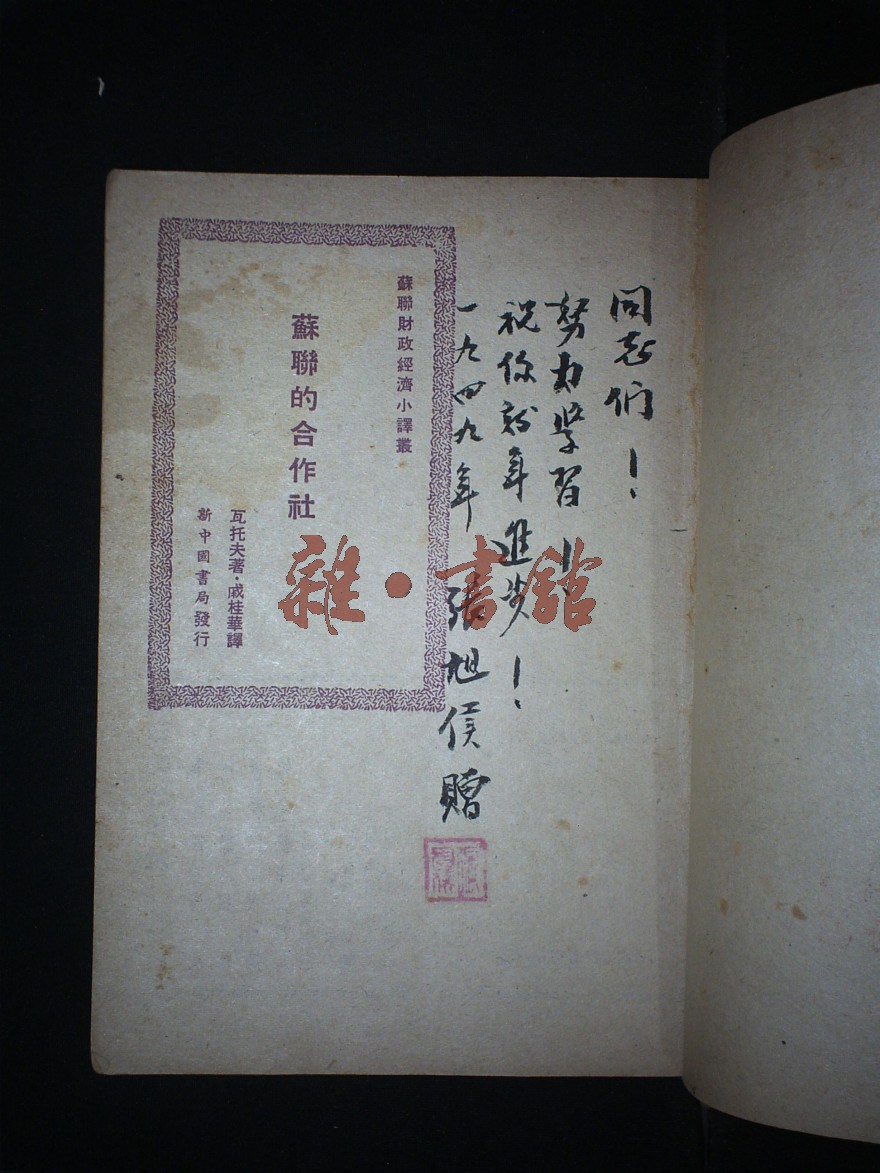 同志们！
努力学習！
祝你新年進步！
一九四九年 張旭侯贈
蘇聯財政經濟小譯叢
蘇聯的合作社
瓦托夫著·戚桂華譯
新中國書局發行
雜·書館